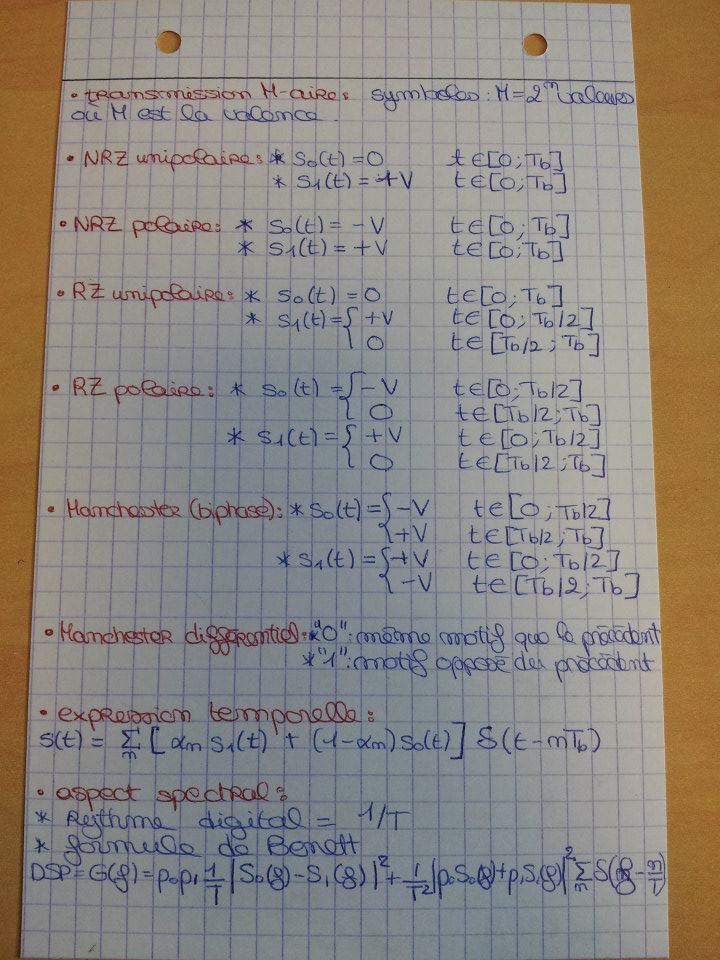 • transmission M-aire: symboles: M = 2^n valeurs
où M est la valence.
• NRZ unipolaire: * s₀(t) = 0 t∈[0; T_b]
* s₁(t) = +V t∈[0; T_b]
• NRZ polaire: * s₀(t) = -V t∈[0; T_b]
* s₁(t) = +V t∈[0; T_b]
• RZ unipolaire: * s₀(t) = 0 t∈[0; T_b]
* s₁(t) = { +V t∈[0; T_b/2]
0 t∈[T_b/2; T_b]
• RZ polaire: * s₀(t) = { -V t∈[0; T_b/2]
0 t∈[T_b/2; T_b]
* s₁(t) = { +V t∈[0; T_b/2]
0 t∈[T_b/2; T_b]
• Manchester (biphase): * s₀(t) = { -V t∈[0; T_b/2]
+V t∈[T_b/2; T_b]
* s₁(t) = { +V t∈[0; T_b/2]
-V t∈[T_b/2; T_b]
• Manchester différentiel: * "0": même motif que le précédent
* "1": motif opposé du précédent
• expression temporelle:
s(t) = Σ_n [αn s₁(t) + (1-αn) s₀(t)] δ(t-nT_b)
• aspect spectral:
* Rythme digital = 1/T
* formule de Benett
DSP = G(f) = p₀p₁ 1/T |S₀(f) - S₁(f)|² + 1/T² |p₀S₀(f) + p₁S₁(f)|² Σ_n δ(f - n/T)